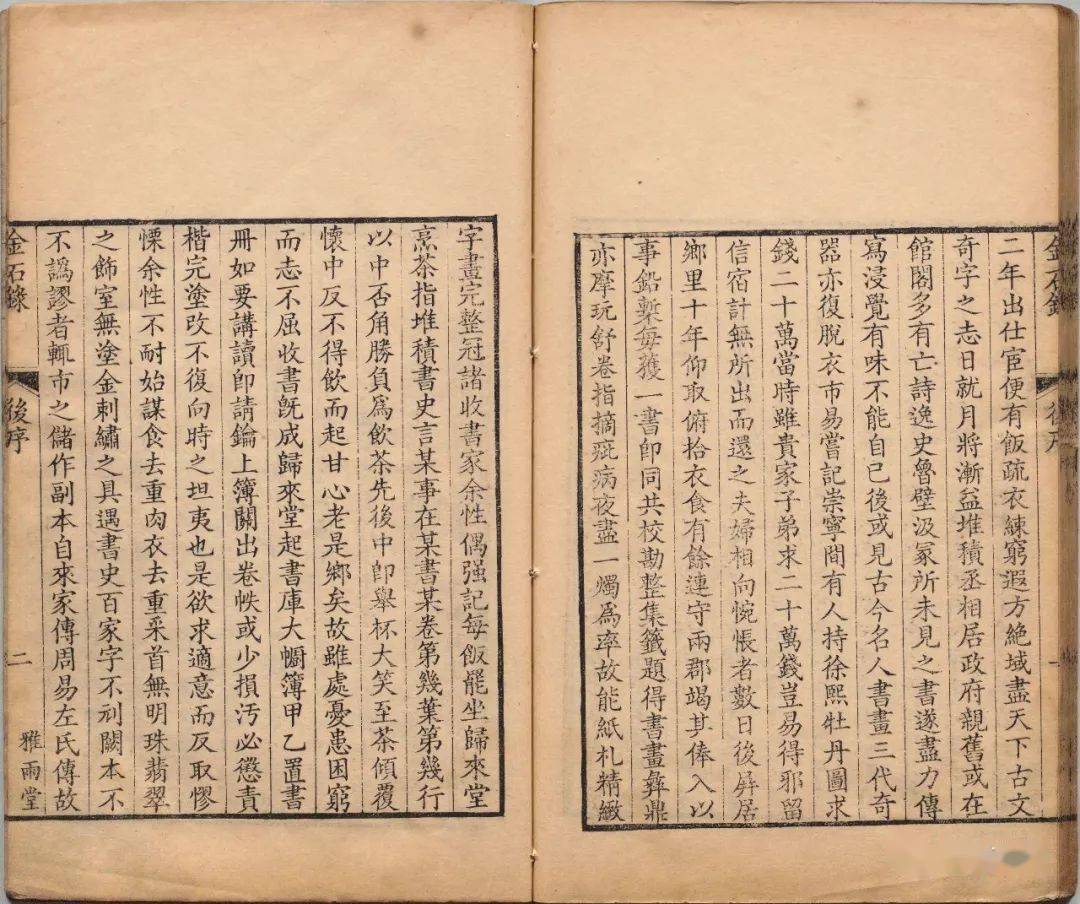 金石錄 後序 一
二年出仕宦便有飯疏衣練窮遐方絶域盡天下古文
奇字之志日就月將漸益堆積丞相居政府親舊或在
館閣多有亡詩逸史魯壁汲冢所未見之書遂盡力傳
寫浸覺有味不能自已後或見古今名人書畫三代奇
器亦復脫衣市易嘗記崇寧間有人持徐熙牡丹圖求
錢二十萬當時雖貴家子弟求二十萬錢豈易得邪留
信宿計無所出而還之夫婦相向惋悵者數日後屏居
鄉里十年仰取俯拾衣食有餘連守兩郡竭其俸入以
事鉛槧每獲一書卽同共校勘整集籤題得書畫彝鼎
亦摩玩舒卷指摘疵病夜盡一燭爲率故能紙札精緻
字畫完整冠諸收書家余性偶强記每飯罷坐歸來堂
烹茶指堆積書史言某事在某書某卷第幾葉第幾行
以中否角勝負爲飲茶先後中卽舉杯大笑至茶傾覆
懷中反不得飲而起甘心老是鄉矣故雖處憂患困窮
而志不屈收書旣成歸來堂起書庫大櫥簿甲乙置書
冊如要講讀卽請鑰上簿關出卷帙或少損汚必懲責
楷完塗改不復向時之坦夷也是欲求適意而反取憀
慄余性不耐始謀食去重肉衣去重采首無明珠翡翠
之飾室無塗金刺繡之具遇書史百家字不刓闕本不
不譌謬者輒市之儲作副本自來家傳周易左氏傳故
金石錄 後序 二 雅雨堂